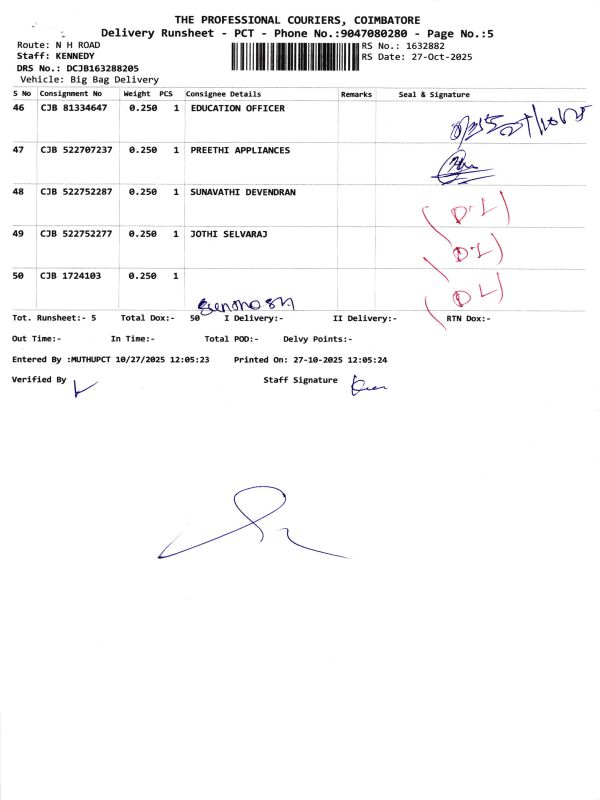 THE PROFESSIONAL COURIERS, COIMBATORE
Delivery Runsheet - PCT - Phone No.:9047080280 - Page No.:5
Route: N H ROAD RS No.: 1632882
Staff: KENNEDY RS Date: 27-Oct-2025
DRS No.: DCJB163288205
Vehicle: Big Bag Delivery
S No Consignment No Weight PCS Consignee Details Remarks Seal & Signature
46 CJB 81334647 0.250 1 EDUCATION OFFICER
47 CJB 522707237 0.250 1 PREETHI APPLIANCES
48 CJB 522752287 0.250 1 SUNAVATHI DEVENDRAN (D.L)
49 CJB 522752277 0.250 1 JOTHI SELVARAJ (D.L)
50 CJB 1724103 0.250 1 (D L)
Tot. Runsheet:- 5 Total Dox:- 50 I Delivery:- II Delivery:- RTN Dox:-
Out Time:- In Time:- Total POD:- Delvy Points:-
Entered By :MUTHUPCT 10/27/2025 12:05:23 Printed On: 27-10-2025 12:05:24
Verified By Staff Signature